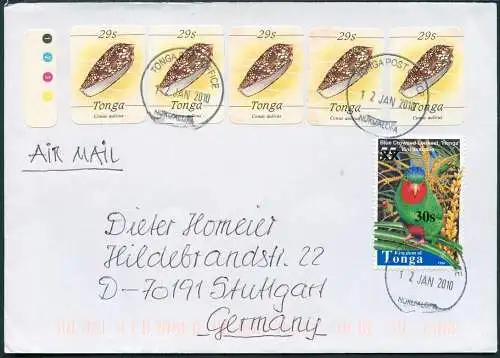 29s 29s 29s 29s 29s
Tonga Tonga Tonga Tonga Tonga
Conus aulicus Conus aulicus Conus aulicus Conus aulicus Conus aulicus
TONGA POST OFFICE
12 JAN 2010
NUKUALOFA
TONGA POST
12 JAN 2010
NUKUALOFA
AIR MAIL
Blue Crowned Lorikeet, 'Henga'
30s
Kingdom of
Tonga
12 JAN 2010
NUKUALOFA
Dieter Homeier
Hildebrandstr. 22
D-70191 Stuttgart
Germany